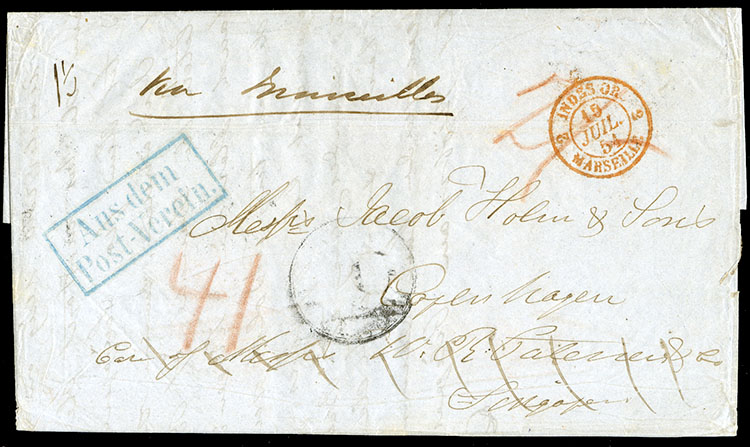 1/5
Via Marseilles
INDES OR.
15
JUIL.
54
2 MARSEILLE 2
Aus dem
Post-Verein.
Messrs Jacob Holm & Sons
41
Copenhagen
Care of Messrs W. R. & Co
Singapore